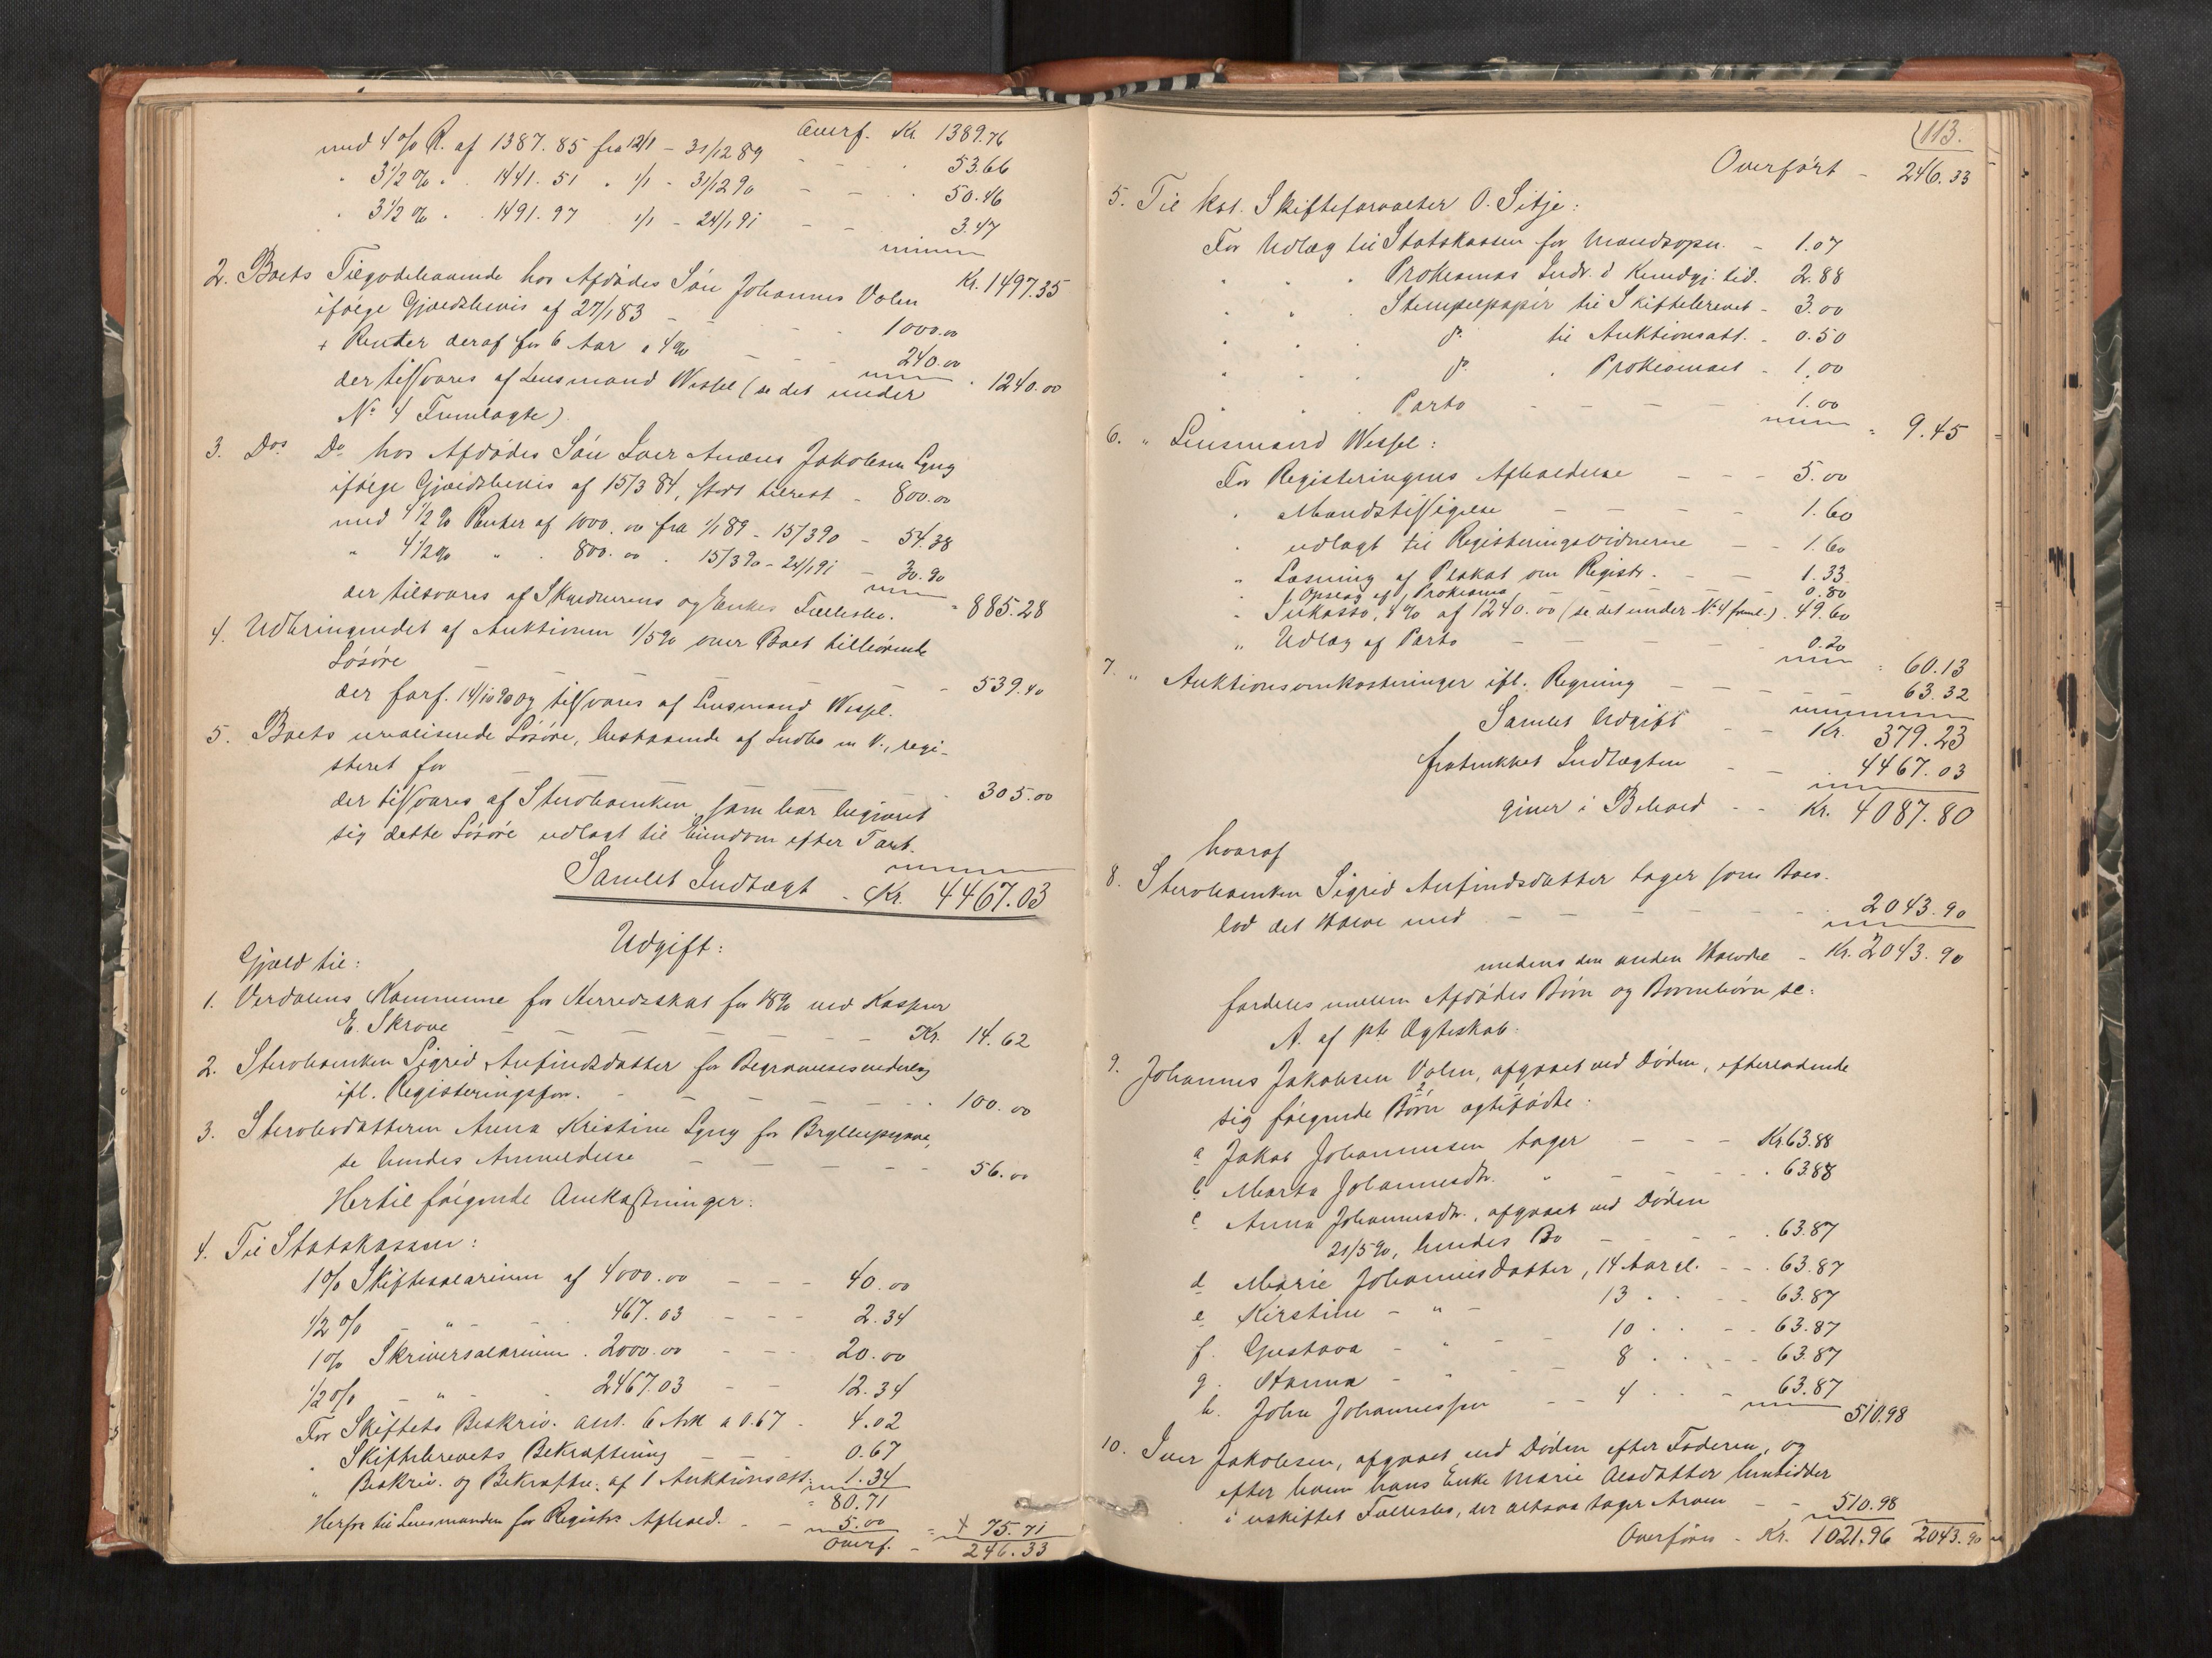 Overf. Kr. 1389.76
med 4% R. af 1387.85 fra 12/1 - 31/12 89 - - 53.66
" 3 1/2 % " 1441.51 " 1/1 - 31/12 90 - - 50.46
" 3 1/2 % " 1491.97 1/1 - 24/1 91 - - 3.47
Kr. 1497.35
2. Boets Tilgodehavende hos Afdødes Søn Johannes Volen
ifølge Gjældsbevis af 27/1 83 - - - 1000.00
+ Renter deraf for 6 Aar a 4% - - - 240.00
" 1240.00
der tilsvares af Lensmand Wessel (se det under
No 4 Fremlagte)
3. Dos Do hos Afdødes Søn Iver Anæus Jakobsen Lyng
ifølge Gjældsbevis af 15/3 84, stort tilrest - 800.00
med 4 1/2 % Renter af 1000.00 fra 1/1 89 - 15/3 90 - 54.38
" 4 1/2 % " " 800.00 " 15/3 90 - 24/1 91 - 30.90
" 885.28
der tilsvares af Skyldnerens og Enkes Fællesbo.
4. Udbringendet af Auktionen 1/5 90 over Boet tilhørende
Løsøre - - - - - 539.40
der forf. 14/10 90 og tilsvares af Lensmand Wessel.
5. Boets urealiserede Løsøre, bestaaende af Indbo m. V., regi-
steret for - - - - - 305.00
der tilsvares af Stervboenken som har begjæret
sig dette Løsøre udlagt til Eiendom efter Taxt.
Samlet Indtægt - Kr. 4467.03
Udgift:
Gjæld til:
1. Verdalens Kommune for Herredsskat for 1890 ved Kasserer
E. Skrove - - - - - Kr. 14.62
2. Stervboenken Sigrid Anfindsdatter for Begravelsesudlæg
ifl. Registeringsforr. - - - - - 100.00
3. Stervbodatteren Anna Kristine Lyng for Bryllupsgave,
se hendes Anmeldelse - - - - - 56.00
Hertil følgende Omkostninger:
4. Til Statskassen:
1% Skiftesalarium af 4000.00 - - - 40.00
1/2 % - " - - 467.03 - - - 2.34
1% Skriversalarium . 2000.00 - - - 20.00
1/2 % - " - - 2467.03 - - 12.34
For Skiftets Beskriv. ant. 6 Ark a 0.67 - 4.02
" Skiftebrevets Bekræftning - - 0.67
" Beskriv. og Bekræftn. af 1 Auktionsatt. 1.34
" 80.71
Herfra til Lensmanden for Registrs Afhold. - - 5.00
" + 75.71
Overf. - 246.33
113.
Overført - 246.33
5. Til Kst. Skifteforvalter O. Sitje:
For Udlæg til Statskassen for Mandsopn. - 1.07
" " " Proklamas Indr. i Kundgj. tid. 2.88
" " " Stempelpapir til Skiftebrevet - 3.00
" " " Do til Auktionsatt. - 0.50
" " " Do " Proklamaet - 1.00
" " " Porto - - - - 1.00
" 9.45
6. " Lensmand Wessel:
For Registeringens Afholdelse - - - 5.00
" Mandstilsigelse - - - - 1.60
" udlagt til Registeringsvidnerne - - 1.60
" Læsning af Plakat om Registr. - - 1.33
" Opslag af 1 Proklama - - - 0.80
" Inkasso, 4% af 1240.00 (se det under No 4 freml.) . 49.60
" Udlæg af Porto - - - - 0.20
" 60.13
7. " Auktionsomkostninger ifl. Regning - - - - - 63.32
Samlet Udgift - - Kr. 379.23
fratrukket Indtægten - - 4467.03
giver i Behold - - Kr. 4087.80
hvoraf
8. Stervboenken Sigrid Anfindsdatter tager som Boes-
lod det Halve med - - - - - - 2043.90
medens den anden Halvdel - Kr. 2043.90
fordeles mellem Afdødes Børn og Børnebørn sl:
A. af 1ste Ægteskab:
9. Johannes Jakobsen Volen, afgaaet ved Døden, efterladende
sig følgende Børn ægtefødte:
a Jakob Johannessen tager - - - Kr. 63.88
b Marta Johannesdtr. " - - - - . 63.88
c Anna Johannesdtr., afgaaet ved Døden
21/5 90, hendes Bo - - - - . 63.87
d Marie Johannesdatter, 14 Aar gl. - - . 63.87
e Kirstine - " - 13 . . - - 63.87
f. Gustava - " - - 10 . . - - 63.87
g. Hanna - " - - 8 . . - - 63.87
h. John Johannessen - - 4 . . - 63.87
510.98
10. Iver Jakobsen, afgaaet ved Døden efter Faderen, og
efter ham hans Enke Marie Olsdatter hensidder
i uskiftet Fællesbo, der altsaa tager Arven - - 510.98
Overføres - Kr. 1021.96 2043.90